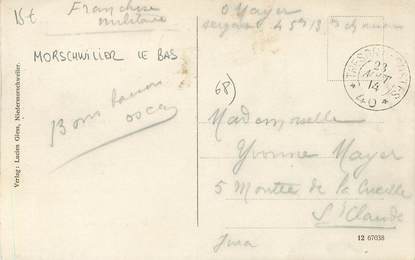 15t
Franchise
militaire
MORSCHWILLER LE BAS
Bons baisers
Oscar
Verlag: Lucien Glenn, Niedermorschweiler.
O Mayer
sergent
(68)
TRESOR ET POSTES
23
AOUT
14
* 40 *
Mademoiselle
Yvonne Mayer
5 Montée de la Cueille
St Claude
Jura
12 67038